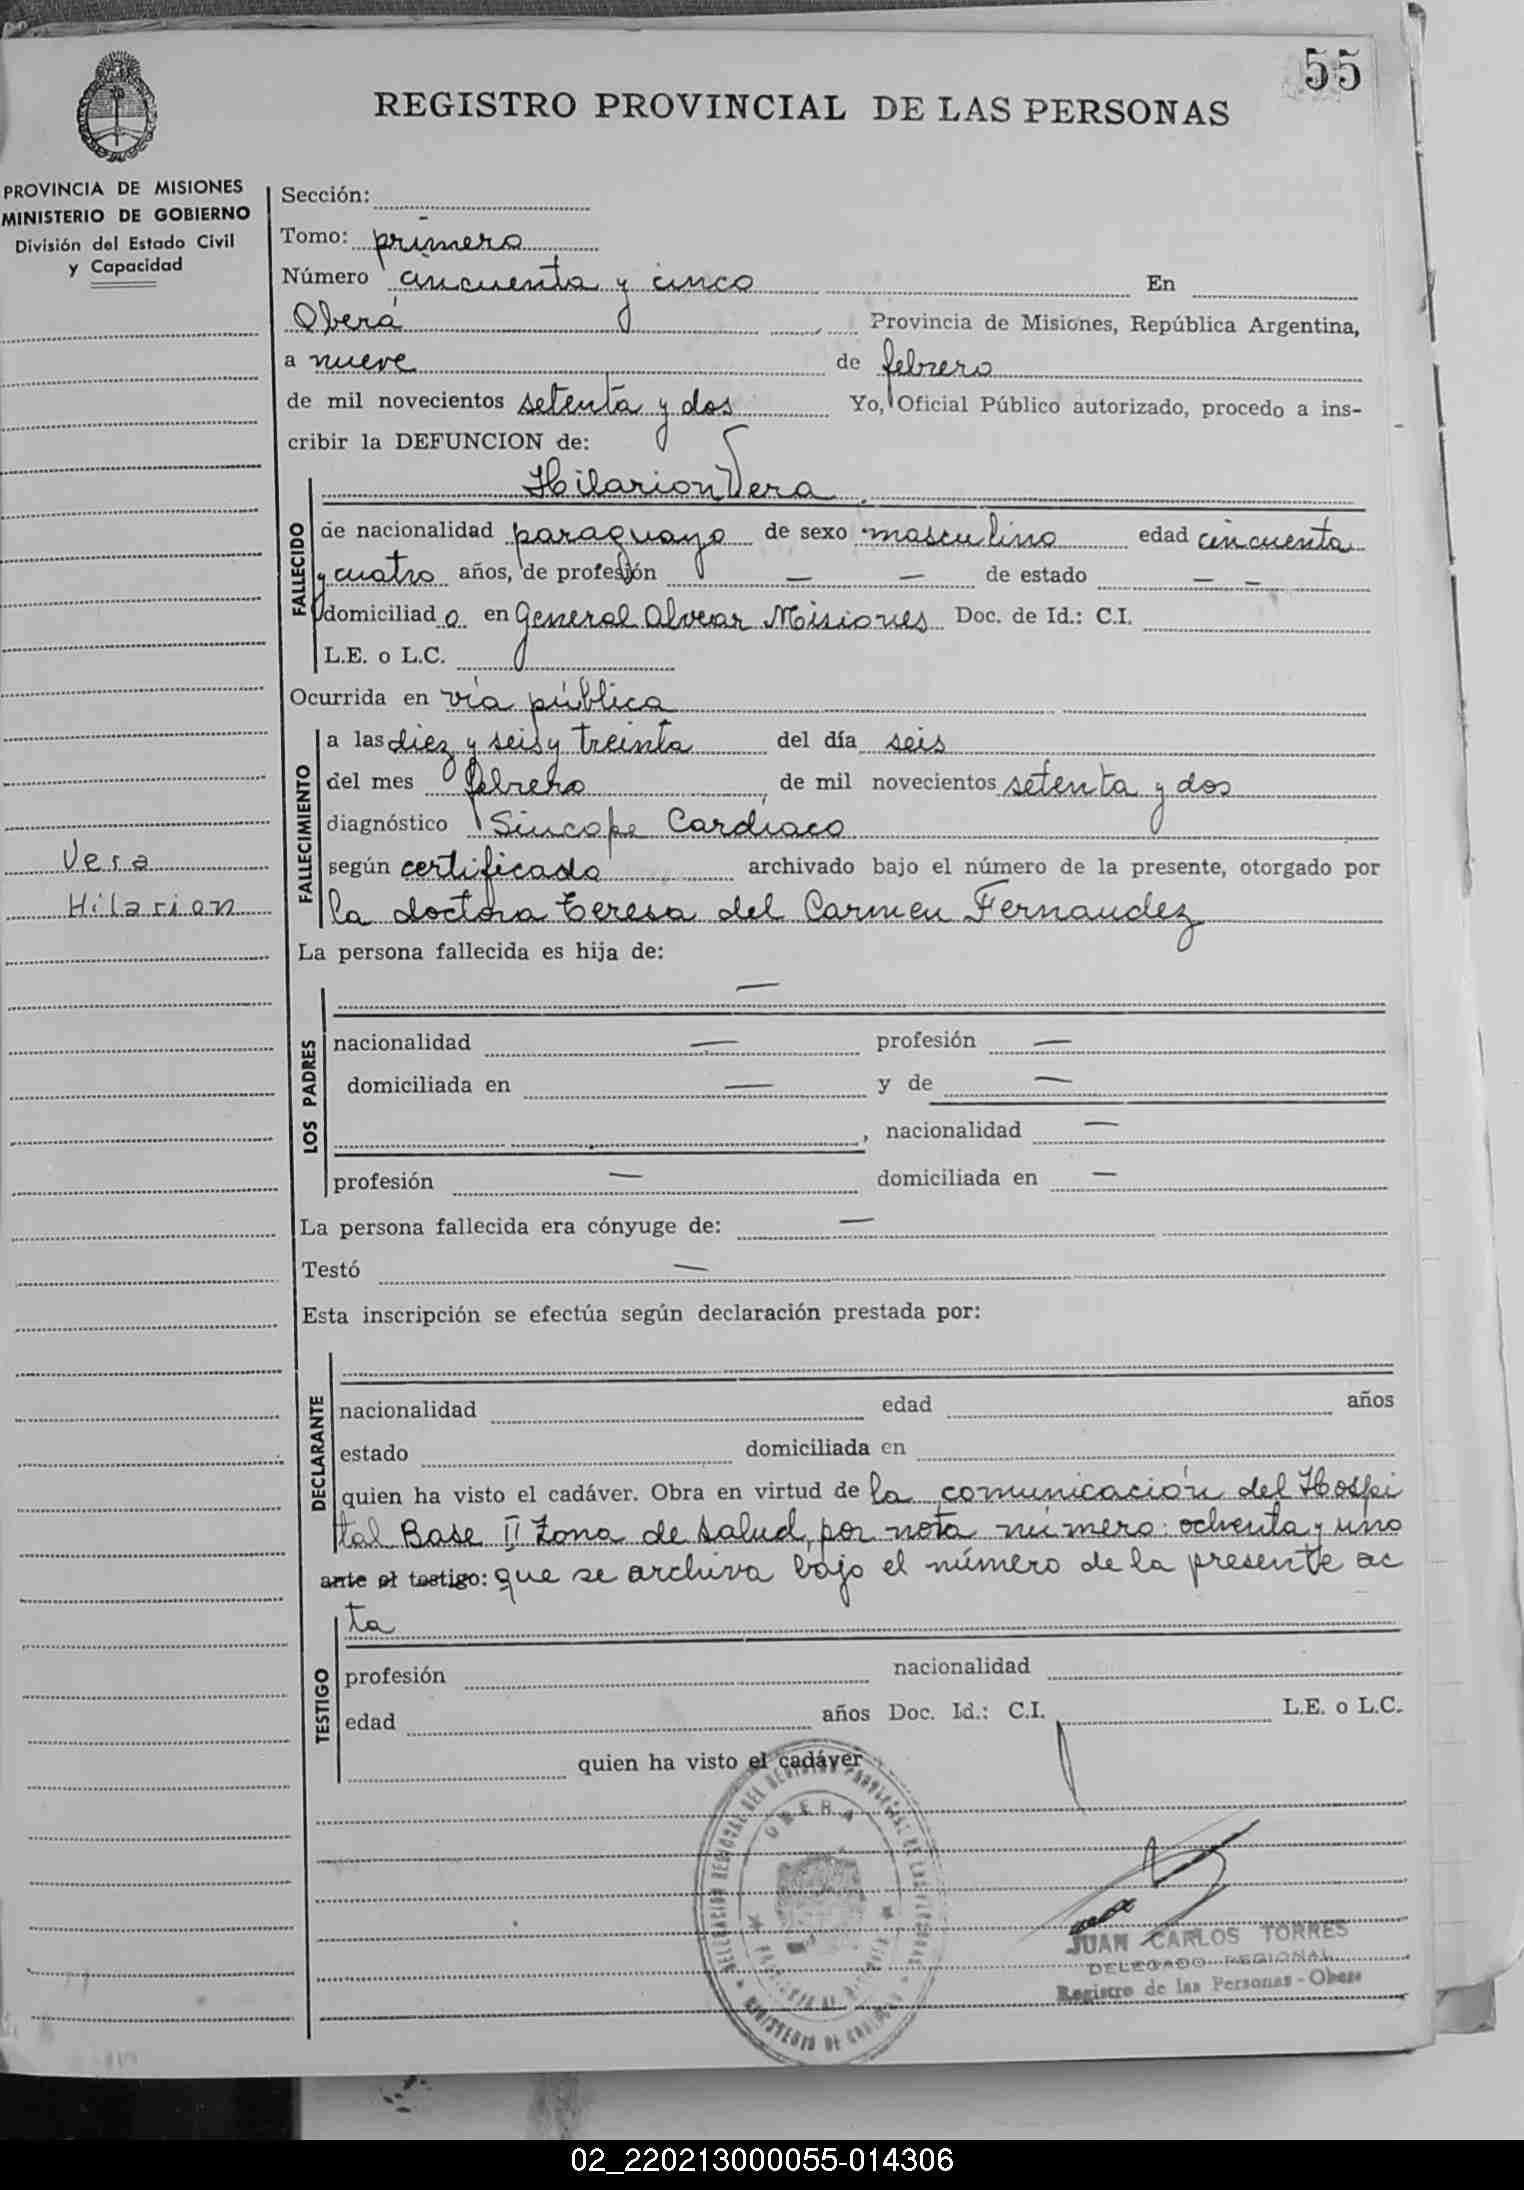 55
REGISTRO PROVINCIAL DE LAS PERSONAS
PROVINCIA DE MISIONES
MINISTERIO DE GOBIERNO
División del Estado Civil
y Capacidad
Sección:
Tomo: primero
Número cincuenta y cinco En
Oberá Provincia de Misiones, República Argentina,
a nueve de febrero
de mil novecientos setenta y dos Yo, Oficial Público autorizado, procedo a ins-
cribir la DEFUNCION de:
Hilarion Vera
FALLECIDO
de nacionalidad paraguayo de sexo masculino edad cincuenta
y cuatro años, de profesión — — de estado — —
domiciliad o en General Alvear Misiones Doc. de Id.: C.I.
L.E. o L.C.
Ocurrida en vía pública
FALLECIMIENTO
a las diez y seis y treinta del día seis
del mes febrero, de mil novecientos setenta y dos
diagnóstico Síncope Cardiaco
según certificado archivado bajo el número de la presente, otorgado por
la doctora Teresa del Carmen Fernandez
Vera
Hilarion
La persona fallecida es hija de:
—
LOS PADRES
nacionalidad — profesión —
domiciliada en — y de —
, nacionalidad —
profesión — domiciliada en —
La persona fallecida era cónyuge de: —
Testó —
Esta inscripción se efectúa según declaración prestada por:
DECLARANTE
nacionalidad edad años
estado domiciliada en
quien ha visto el cadáver. Obra en virtud de la comunicación del Hospi
tal Base II Zona de Salud, por nota número: ochenta y uno
ante el testigo: que se archiva bajo el número de la presente ac
ta
TESTIGO
profesión nacionalidad
edad años Doc. Id.: C.I. L.E. o L.C.
quien ha visto el cadáver
DELEGACION REGIONAL DEL REGISTRO PROVINCIAL DE LAS PERSONAS
OBERA
PROVINCIA DE MISIONES
MINISTERIO DE GOBIERNO
JUAN CARLOS TORRES
DELEGADO REGIONAL
Registro de las Personas - Obera
02_220213000055-014306